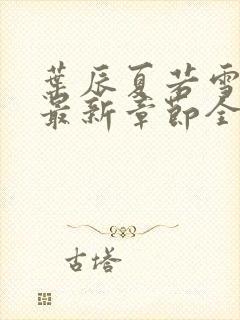 葉辰夏若雪
最新章節全
古塔